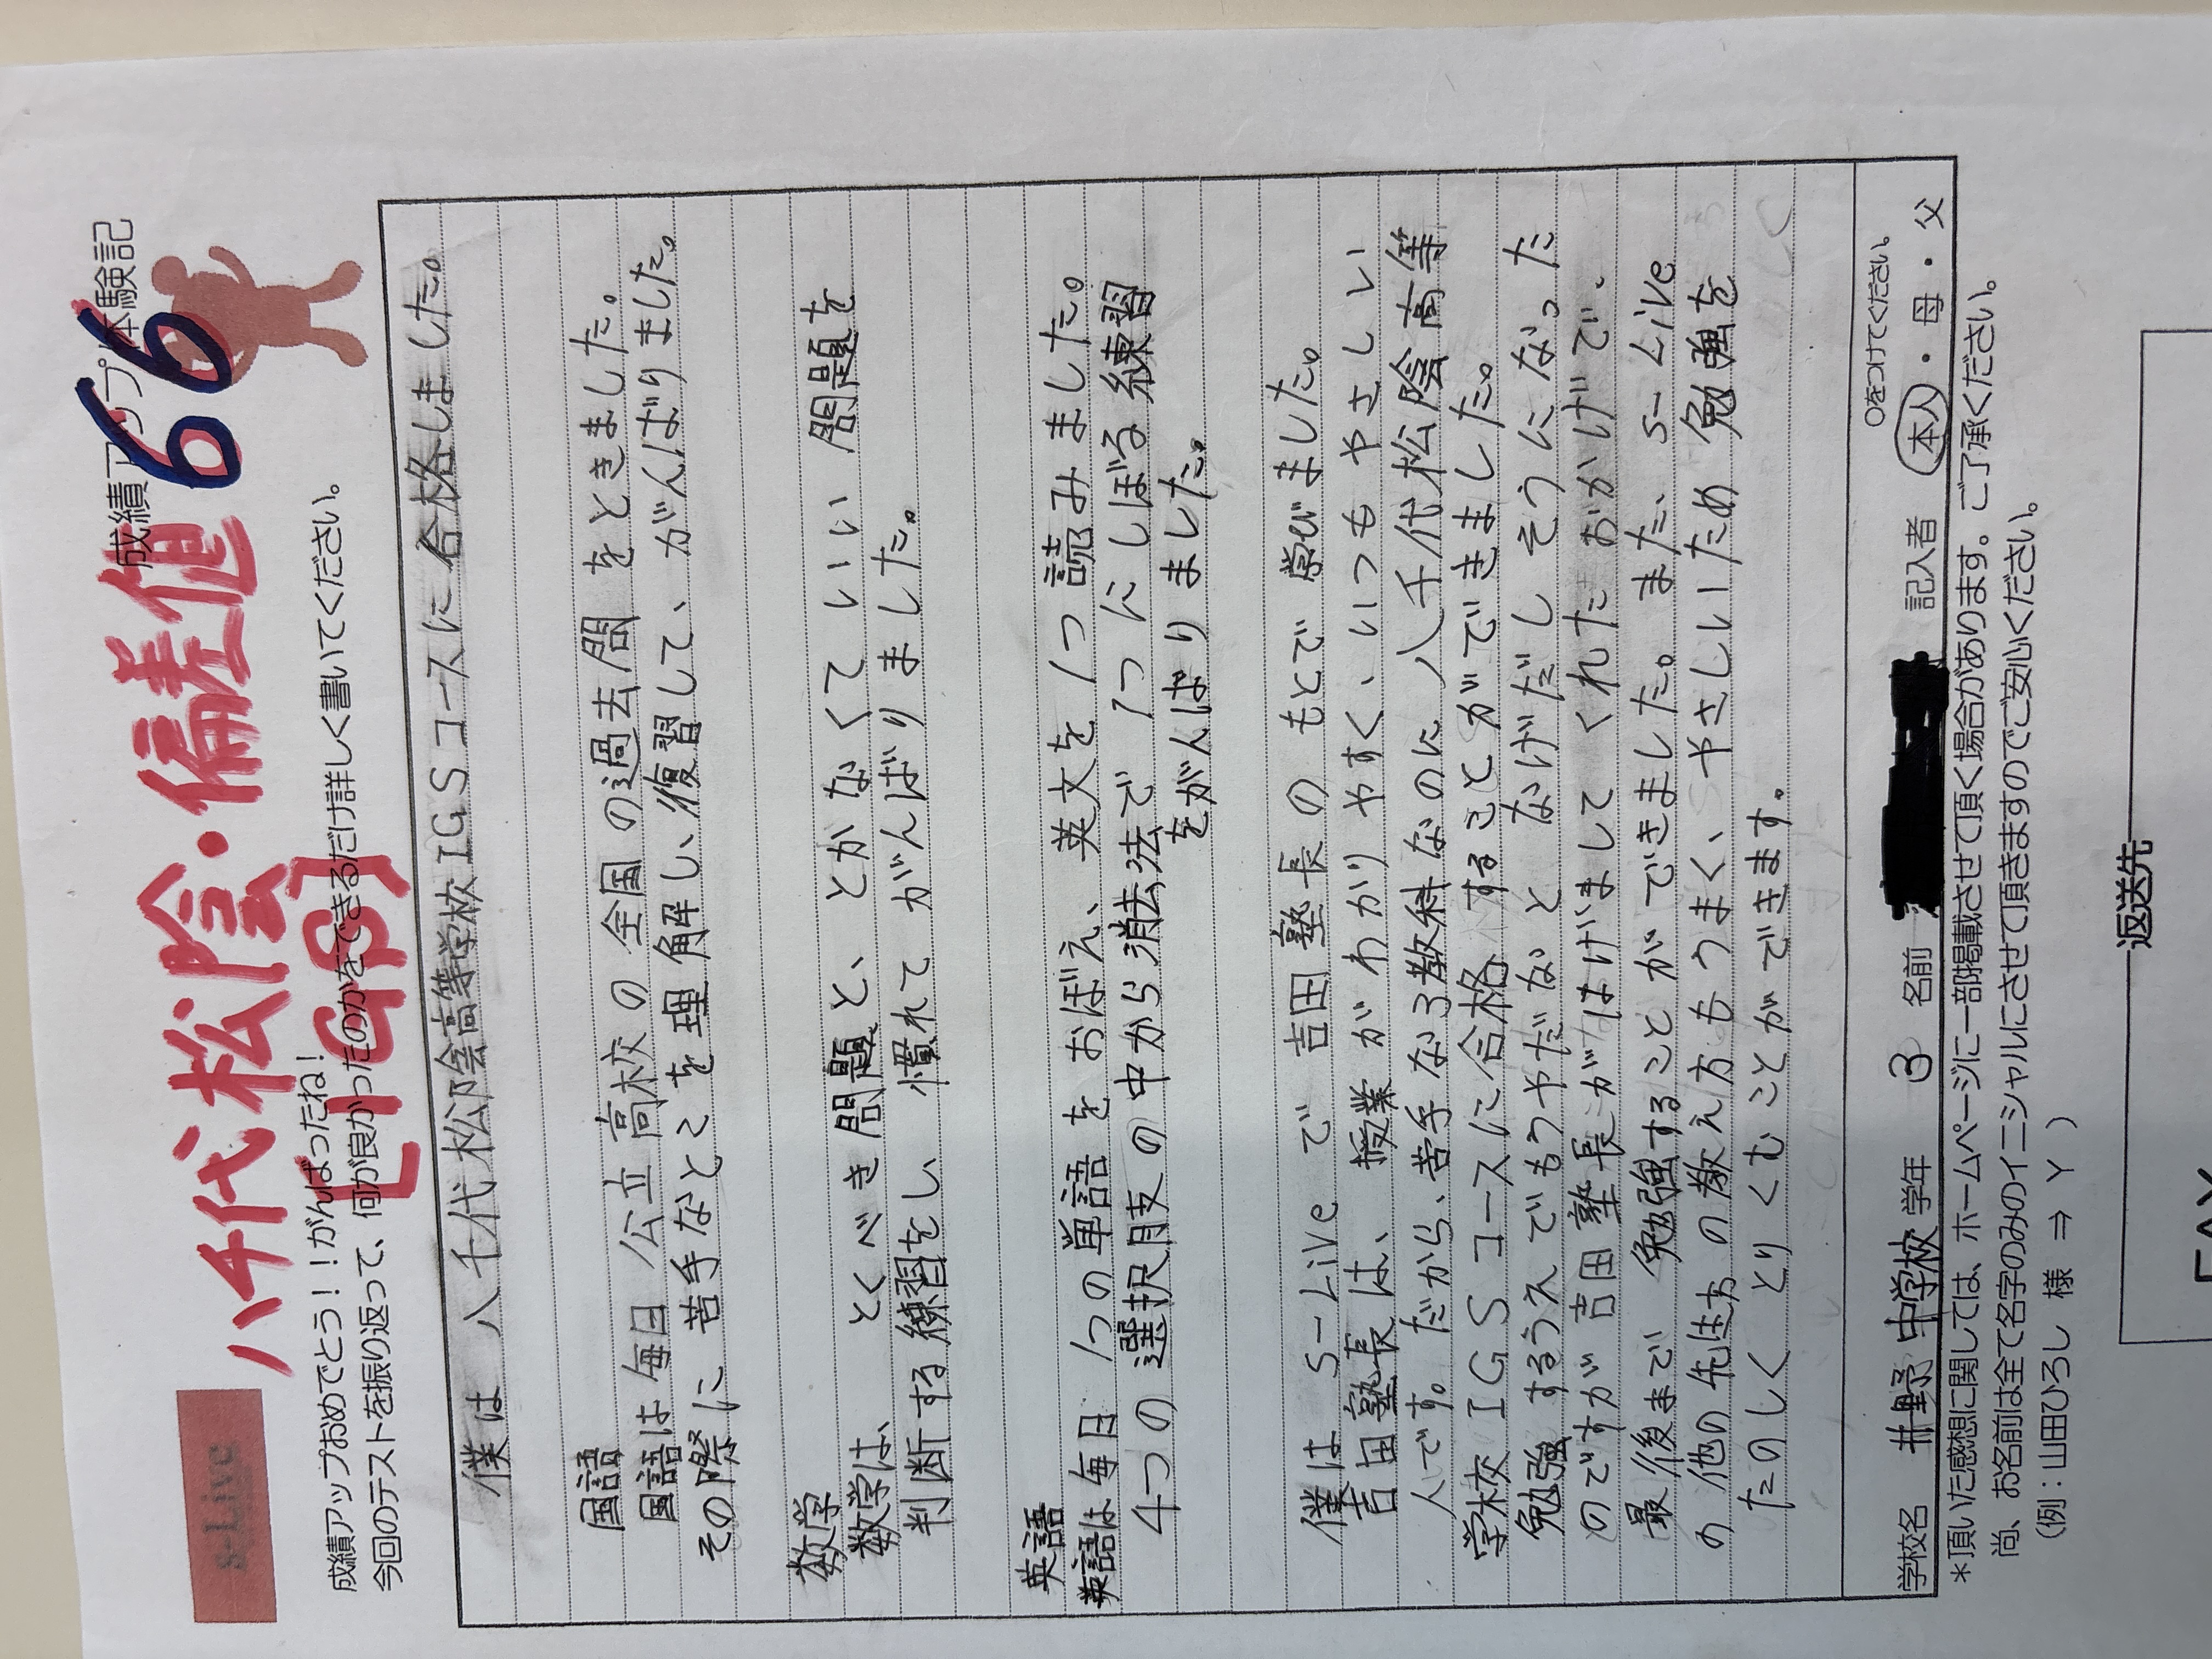 s-Live
成績アップ体験記
八千代松陰・偏差値66
[IGS]
成績アップおめでとう！！がんばったね！
今回のテストを振り返って、何が良かったのかをできるだけ詳しく書いてください。
僕は 八千代松陰高等学校IGSコースに合格しました。
国語
国語は毎日 公立高校の全国の過去問をときました。
その際に苦手なとこを理解し、復習して、がんばりました。
数学
数学は、とくべき問題と、とかなくていい問題を
判断する練習をし 慣れて がんばりました。
英語
英語は毎日 1つの単語をおぼえ、英文を1つ読みました。
4つの選択肢の中から消去法で1つにしぼる練習
をがんばりました。
僕は S-Live で 吉田塾長のもとで学びました。
吉田塾長は、授業がわかりやすく、いつもやさしい
人です。だから、苦手な3教科なのに八千代松陰高等
学校IGSコースに合格することができました。
勉強するうえでもうやだなと なげだしそうになった
のですが 吉田塾長がはげましてくれたおかげで、
最後まで 勉強することができました。また、S-Live
の他の先生方の教え方もうまく、やさしいため 勉強を
たのしくとりくむことができます。
学校名 井野中学校 学年 3 名前 記入者 本人・母・父
○をつけてください。
＊頂いた感想に関しては、ホームページに一部掲載させて頂く場合があります。ご了承ください。
尚、お名前は全て名字のみのイニシャルにさせて頂きますのでご安心ください。
（例：山田ひろし 様 ⇒ Y ）
返送先